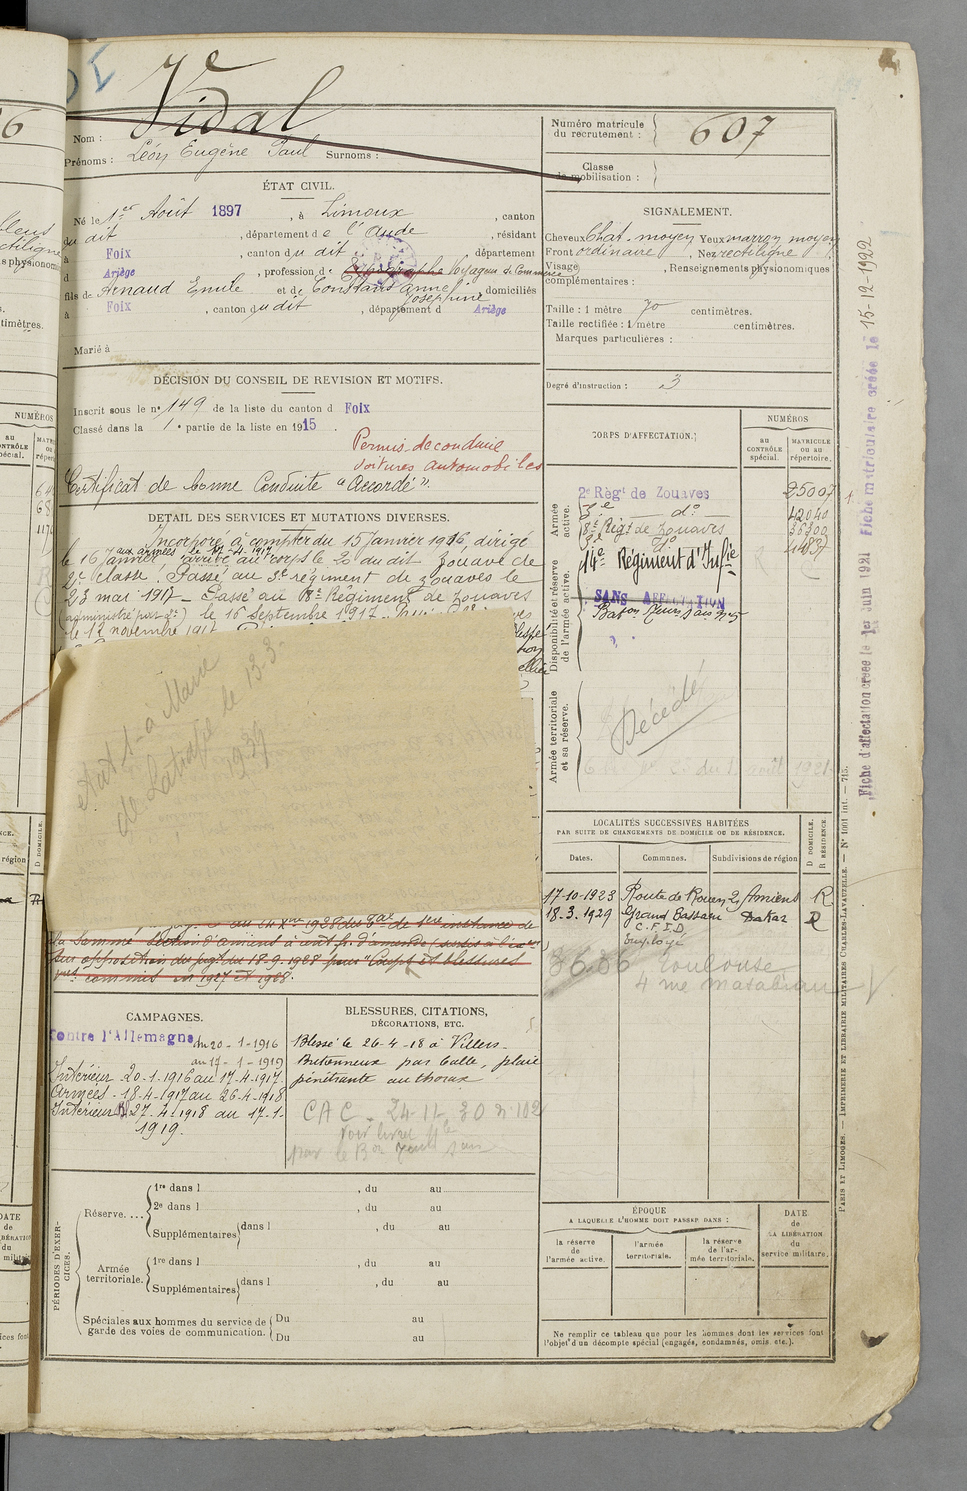 Vidal
Nom :
Prénoms : Léon Eugène Paul Surnoms :
Numéro matricule
du recrutement :
607
Classe
de mobilisation :
ÉTAT CIVIL.
Né le 1er Août 1897, à Limoux, canton
du dit, département de l'Aude, résidant
à Foix, canton du dit, département
d Ariège, profession de Voyageur de Commerce
fils de Arnaud Emile et de Constans Anne Josephine, domiciliés
à Foix, canton du dit, département d Ariège
Marié à
SIGNALEMENT.
Cheveux Chat. moyen Yeux marron moyen
Front ordinaire, Nez rectiligne
Visage, Renseignements physionomiques
complémentaires :
Taille : 1 mètre 70 centimètres.
Taille rectifiée : 1 mètre centimètres.
Marques particulières :
Degré d'instruction : 3
DÉCISION DU CONSEIL DE REVISION ET MOTIFS.
Inscrit sous le n° 149 de la liste du canton d Foix
Classé dans la 1e partie de la liste en 1915.
Permis de conduire
voitures automobiles
Certificat de bonne Conduite "Accordé".
DETAIL DES SERVICES ET MUTATIONS DIVERSES.
Incorporé à compter du 15 janvier 1916, dirigé
aux armées le 17-4-1917
le 16 janvier, arrivé au corps le 20 du dit Zouave de
2e classe. Passé au 3e régiment de zouaves le
23 mai 1917 - Passé au 8e Régiment de Zouaves
(administré par d°) le 16 Septembre 1917.
le 12 novembre 1917
de Lahage le 13-3
1939
1928 de 1ere instance de
la Somme section d'Amiens à cent fr. d'amende
sur opposition du jugt du 18-9-1928 pour "Coups et blessures
commis en 1927 et 1928.
CORPS D'AFFECTATION.
NUMÉROS
au
CONTRÔLE
spécial.
MATRICULE
ou au
répertoire.
Armée
active.
2e Régt de Zouaves 25007
3e d° 12040
8e Régt de Zouaves 36300
Disponibilité et réserve
de l'armée active.
14e Régiment d'Infie
SANS AFFECTATION
Armée territoriale
et sa réserve.
Décédé
du 1 août 1921
LOCALITÉS SUCCESSIVES HABITÉES
PAR SUITE DE CHANGEMENTS DE DOMICILE OU DE RÉSIDENCE.
Dates. Communes. Subdivisions de région
D DOMICILE.
R RÉSIDENCE
17-10-1923 Route de Rouen 29 Amiens R
18.3.1929 Grand Bassam Dakar R
C.F.I.D.
Employé
Toulouse
4 rue Matabiau
CAMPAGNES.
Contre l'Allemagne du 20-1-1916
au 17-1-1919
Intérieur 20-1-1916 au 17-4-1917
Armées - 18-4-1917 au 26-4-1918
Intérieur 27-4-1918 au 17-1-
1919.
BLESSURES, CITATIONS,
DÉCORATIONS, ETC.
Blessé le 26-4-18 à Villers-
Bretonneux par balle, plaie
pénétrante au thorax
CAC - 24-11-30 n° 102
voir livret
PÉRIODES D'EXERCICES.
Réserve....
1re dans l , du au
2e dans l , du au
Supplémentaires dans l , du au
Armée
territoriale.
1re dans l , du au
Supplémentaires dans l , du au
Spéciales aux hommes du service de
garde des voies de communication.
Du au
Du au
ÉPOQUE
A LAQUELLE L'HOMME DOIT PASSER DANS :
la réserve
de
l'armée active.
l'armée
territoriale.
la réserve
de l'armée territoriale.
DATE
de
LA LIBÉRATION
du
service militaire.
Ne remplir ce tableau que pour les hommes dont les services font
l'objet d'un décompte spécial (engagés, condamnés, omis etc.).
Fiche d'affectation créée le 1er Juin 1921 Fiche matriculaire créée le 15-12-1922
PARIS ET LIMOGES. — IMPRIMERIE ET LIBRAIRIE MILITAIRES CHARLES-LAVAUZELLE. — N° 1001 int. — 715.